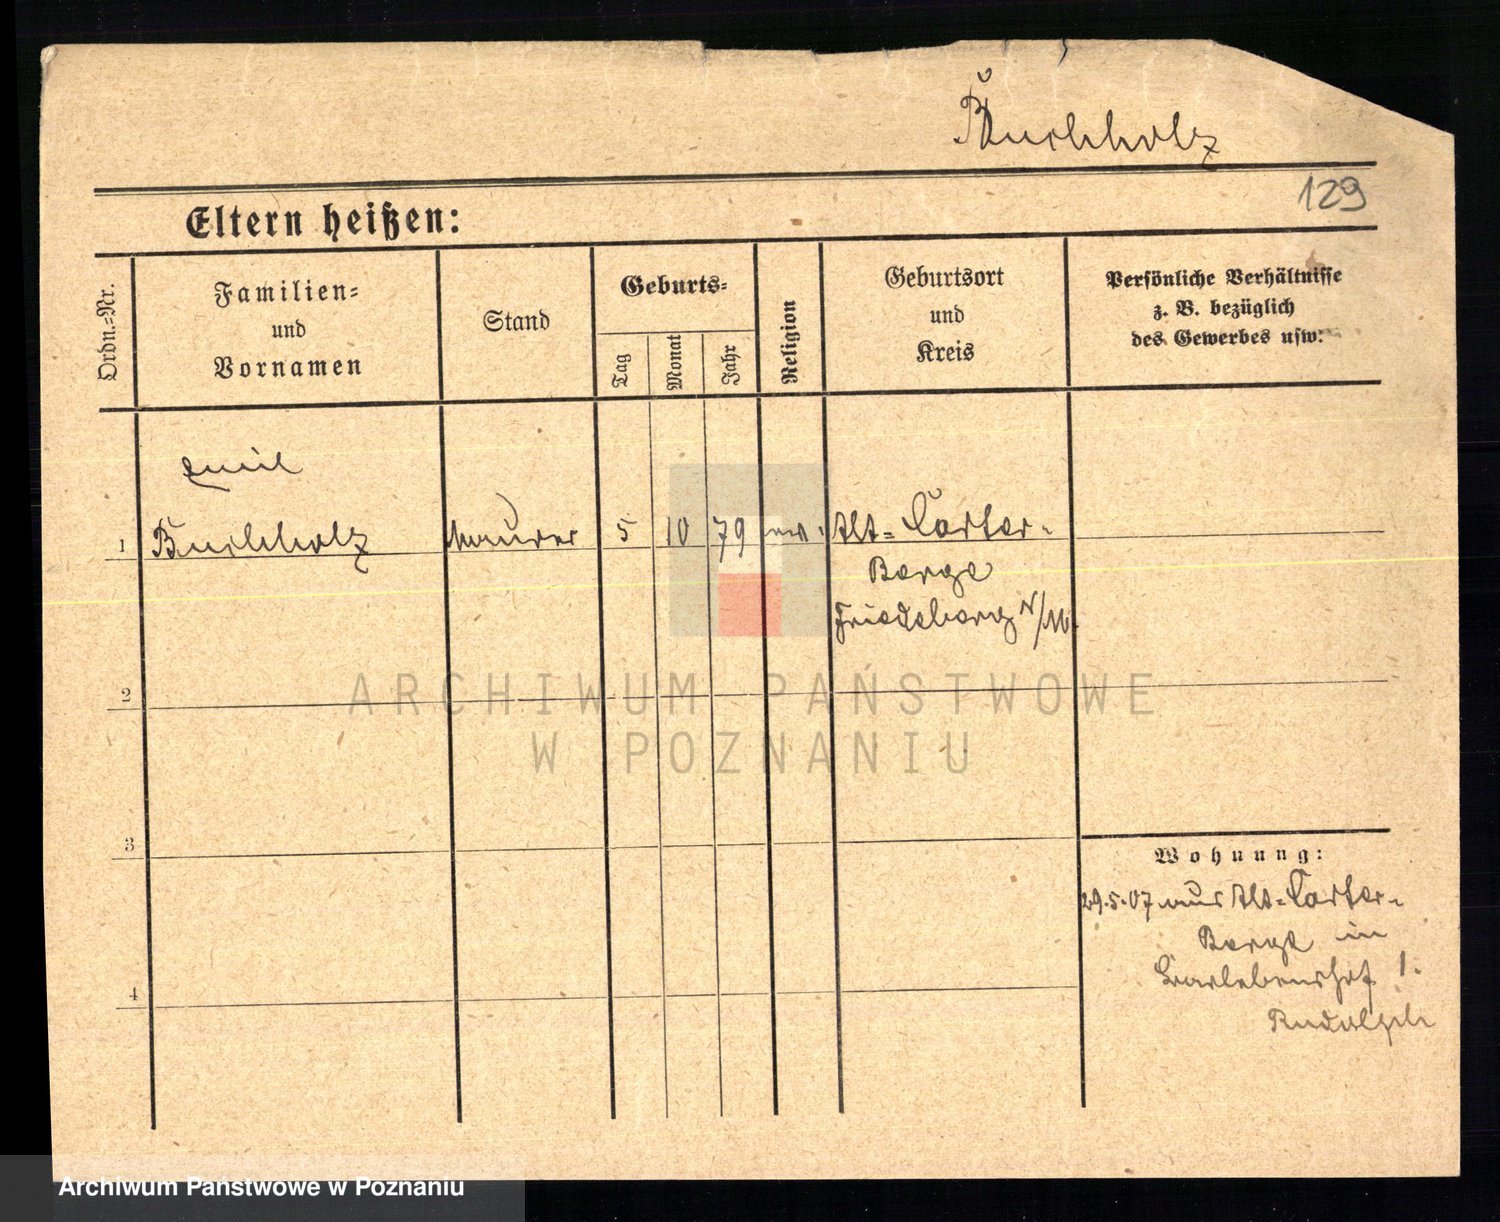 Buchholz
129
Eltern heißen:
Ordn.-Nr.
Familien-
und
Vornamen
Stand
Geburts-
Tag
Monat
Jahr
Religion
Geburtsort
und
Kreis
Persönliche Verhältnisse
z. B. bezüglich
des Gewerbes usw.
Emil
1 Buchholz Maurer 5 10 79 ev. Alt-
Friedeberg N/M.
2
ARCHIWUM PAŃSTWOWE
W POZNANIU
3
Wohnung:
29.5.07 aus Alt-
in
4
Rudolph
Archiwum Państwowe w Poznaniu